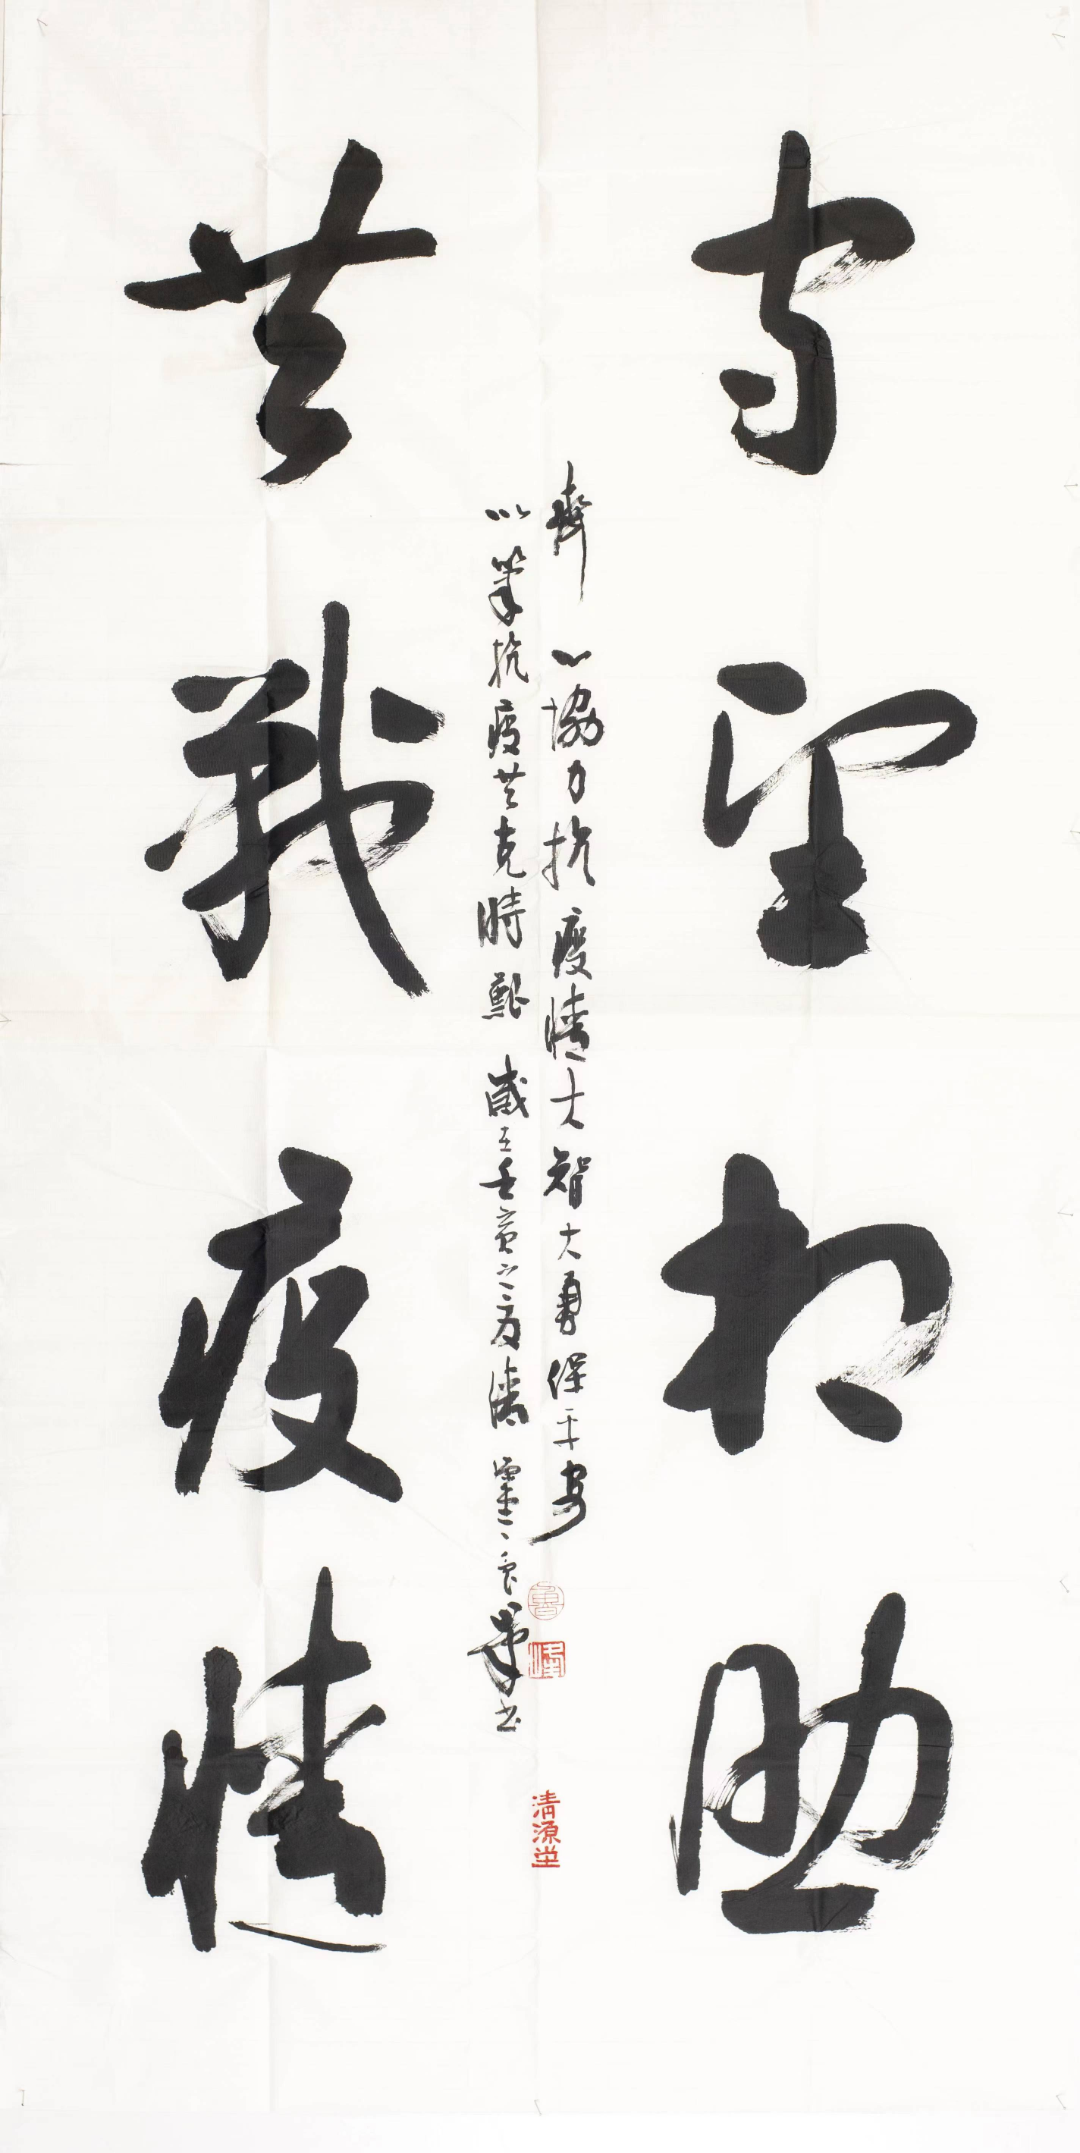 守望相助
共戰疫情
齊心協力抗疫情大智大勇保平安
以筆抗疫共克時艱 歲在壬寅之夏
書
魯
峰
清源堂